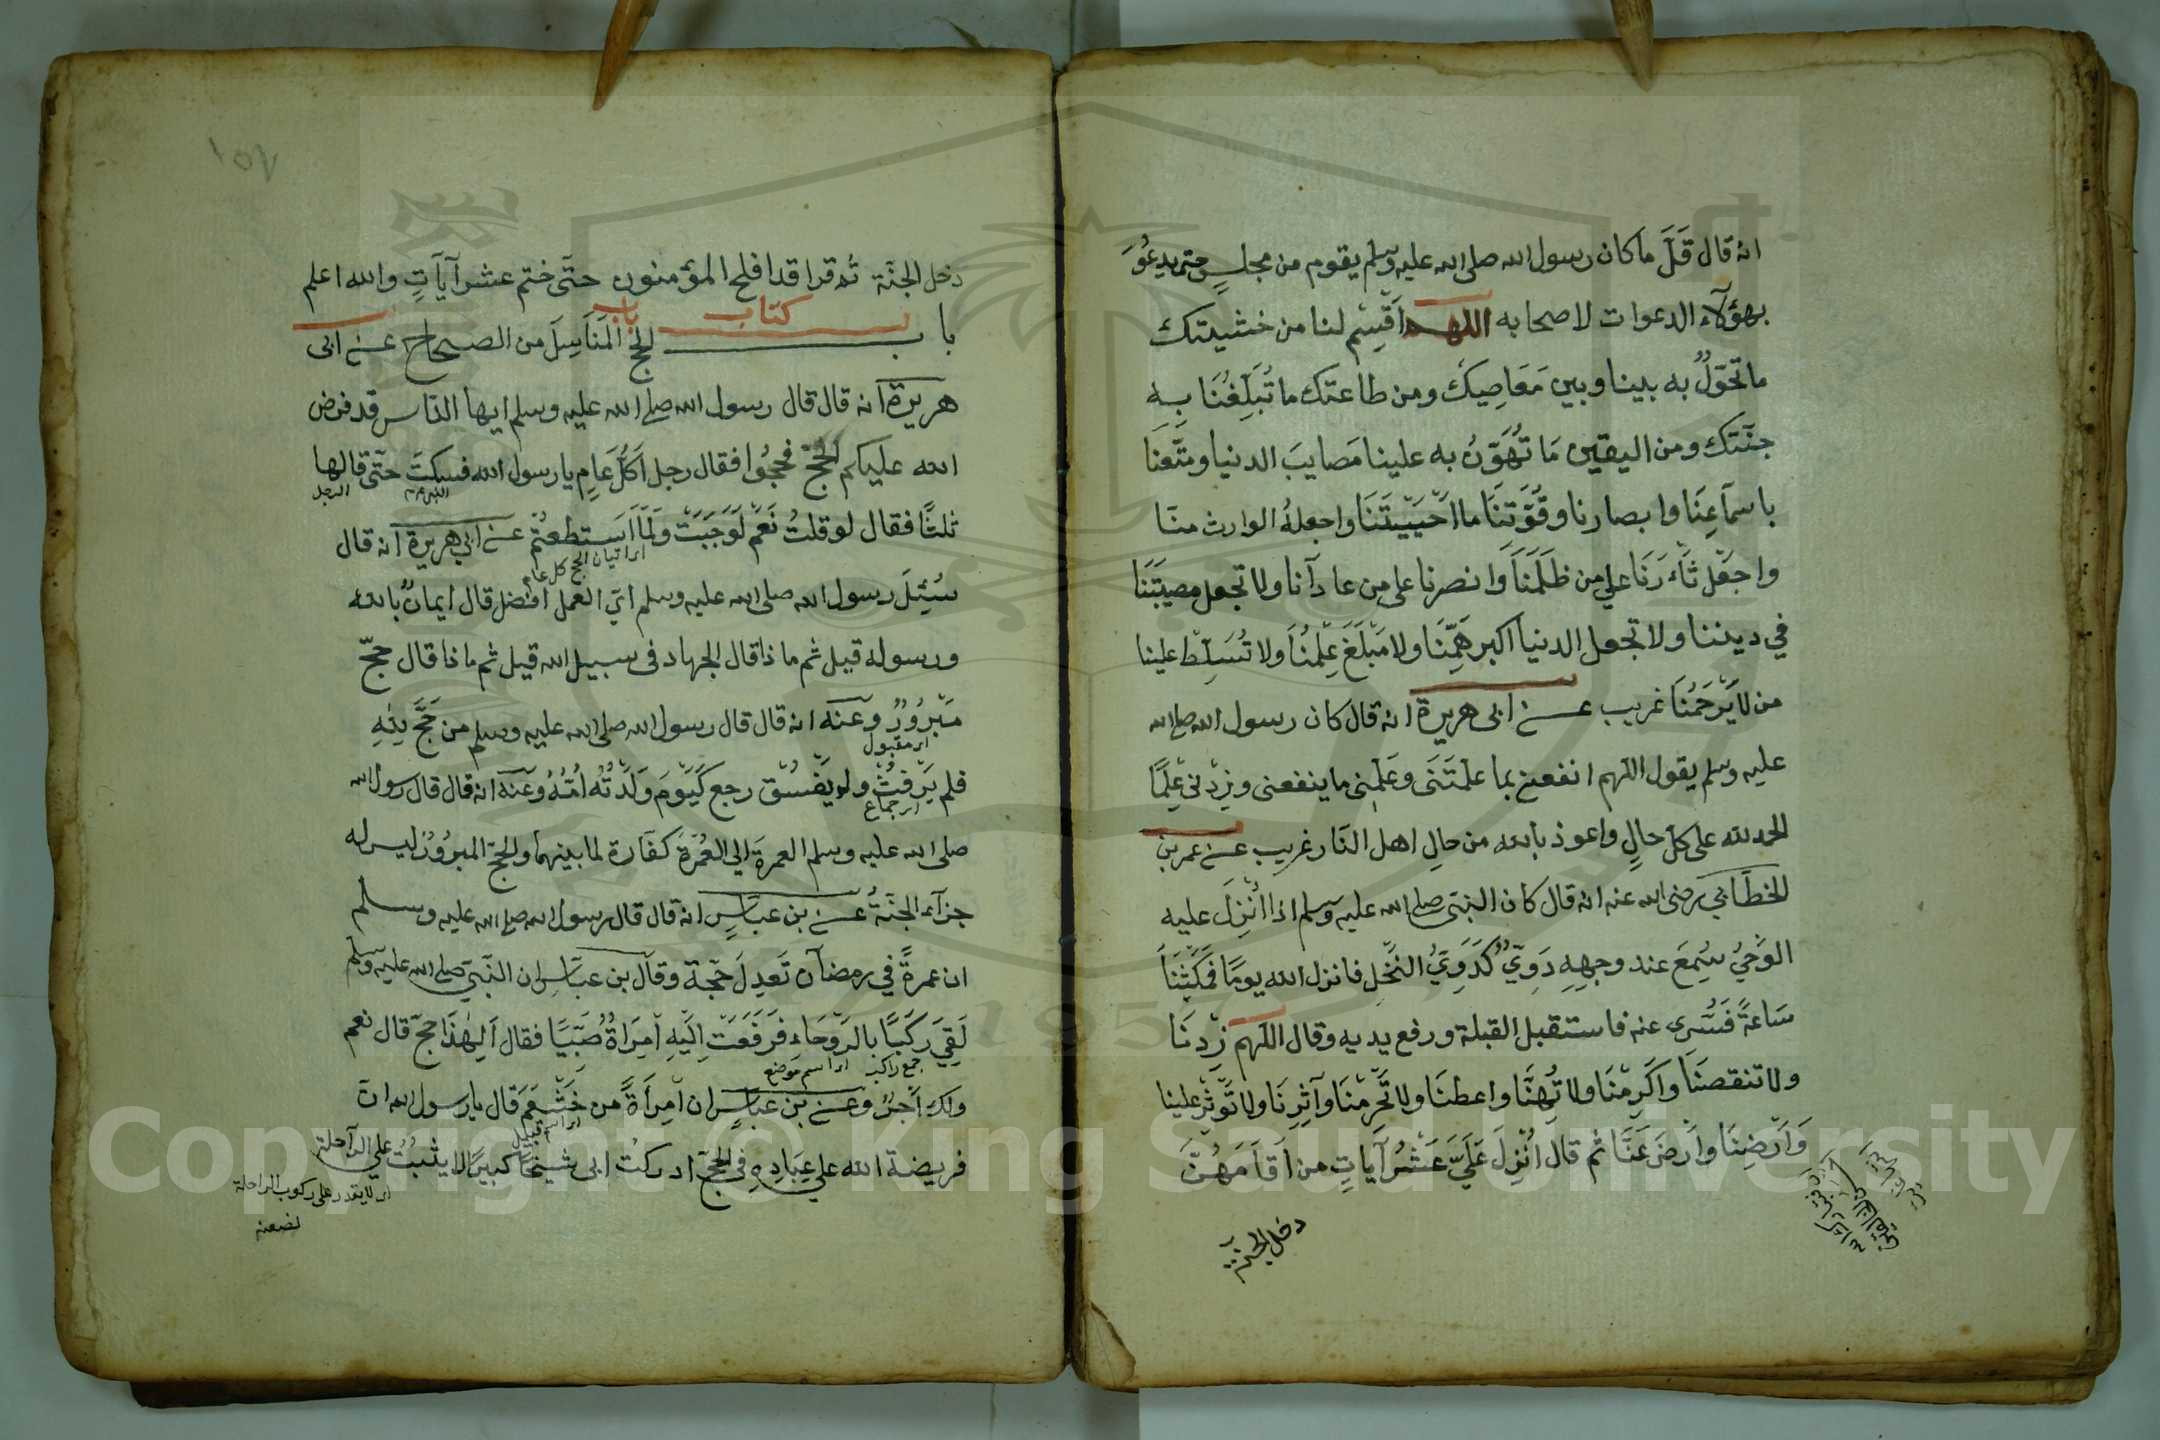 انه قال قَلَّ ما كان رسول الله صلى الله عليه وسلم يقوم من مجلسٍ حتى يدعُوَ
بهؤلآء الدعوات لاصحابه اللهم اَقْسِم لنا من خشيتك
ما تحوّلُ به بيننا وبين مَعَاصِيك ومن طاعتك ما تُبَلِّغُنَا بِه
جنّتك ومن اليقين مَا تُهَوِّنُ به علينا مَصايبَ الدنيا ومَتِّعنَا
باسماَعِنَا وابصارنا وقُوَّتِنَا ما اَحْيَيْتَنَا واجعلهُ الوارث منّا
واجعَل ثَأرَنَا على من ظَلَمَنَا وانصرنا على من عادآنا ولا تجعل مصيبَتَنَا
في ديننا ولا تجعل الدنيا اكبر هَمِّنَا ولا مَبْلَغَ عِلْمِنَا ولا تُسَلِّط علينا
من لا يَرْحَمُنَا غريب عن ابى هريرة انه قال كان رسول الله صلى الله
عليه وسلم يقول اللهم انفعنى بما علّمتَنى وعَلِّمنى ما ينفعنى وزِدْنى عِلمًا
الحمد لله على كلّ حالٍ واعوذ بالله من حالِ اهل النّار غريب عن عمر بن
الخطّاب رضى الله عنه انه قال كان النبى صلى الله عليه وسلم اذا اُنْزِلَ عليه
الوَحْيُ سُمِعَ عند وجههِ دَوِيٌّ كَدَوِيِّ النَّحْلِ فانزل الله يومًا فمَكَثْنَا
سَاعةً فَسُرِّى عنه فاستقبل القبلة ورفع يديه وقال اللهم زِدْنَا
ولا تنقصنَا وَاَكْرِمْنَا ولا تُهِنَّا واعطنَا ولا تَحْرِمْنَا وآثِرنَا ولا تُؤثِرْ علينا
وَاَرْضِنَا وَارْضَ عَنَّا ثم قال اُنْزِلَ عَلَيَّ عَشْرُ آيَاتٍ من اَقَامَهُنَّ
دخل الجنّة
١٥٧
دخل الجنّة ثم قرا قد افلح المؤمنون حتّى ختم عشر آياتٍ والله اعلم
كتاب باب
باب الحج المَنَاسِك من الصحاح عن ابى
هريرة انه قال قال رسول الله صلى الله عليه وسلم ايها النّاس قد فرض
الله عليكم الحجّ فحجُوا فقال رجل اَكُلَّ عَامٍ يا رسول الله فسكتَ حتّى قالها
الرجل
ثلثًا فقال لو قلتُ نَعَمْ لَوَجَبَتْ ولَمَا اَستطعتُم عن ابى هريرة انه قال
اى اتيان الحج كل عام
سُئِلَ رسول الله صلى الله عليه وسلم ايّ العمل افضل قال ايمانٌ بالله
ورسوله قيل ثم ماذا قال الجهاد فى سبيل الله قيل ثم ماذا قال حجّ
مَبْرُورٌ وعنه انه قال قال رسول الله صلى الله عليه وسلم من حَجَّ لِلهِ
اى مقبول
فلم يَرْفُثْ ولم يَفْسُقْ رجع كَيَوْمَ وَلَدَتْهُ اُمُّهُ وعنه انه قال قال رسول الله
اى جماع
صلى الله عليه وسلم العمرة الى العُمْرَة كَفّارة لما بينهما والحجّ المبرُورُ ليس له
جزآء الجنّةُ عن بن عبّاسٍ انه قال قال رسول الله صلى الله عليه وسلم
ان عمرةً في رمضان تَعدِلُ حَجّة وقال بن عبّاس ان النّبيّ صلى الله عليه وسلم
لَقِيَ رَكبًا بالرّوحَاءِ فرَفَعَت اِلَيْهِ اِمْرَاةٌ صَبِيًّا فقال اَلِهٰذَا حجّ قال نعم
جمع راكب اى اسم موضع
ولكِ اَجْرٌ وعن بن عبّاسٍ ان امْرأةً من خَثْعَمَ قال يا رسول الله انّ
اى اسم قبيلة
فريضة الله على عِبَادِهِ فى الحجّ ادركت ابى شيخًا كبيرًا لا يثبُتُ على الرآحلة
اى لا يقدر على ركوب الراحلة
لضعفه
Copyright © King Saud University
1957